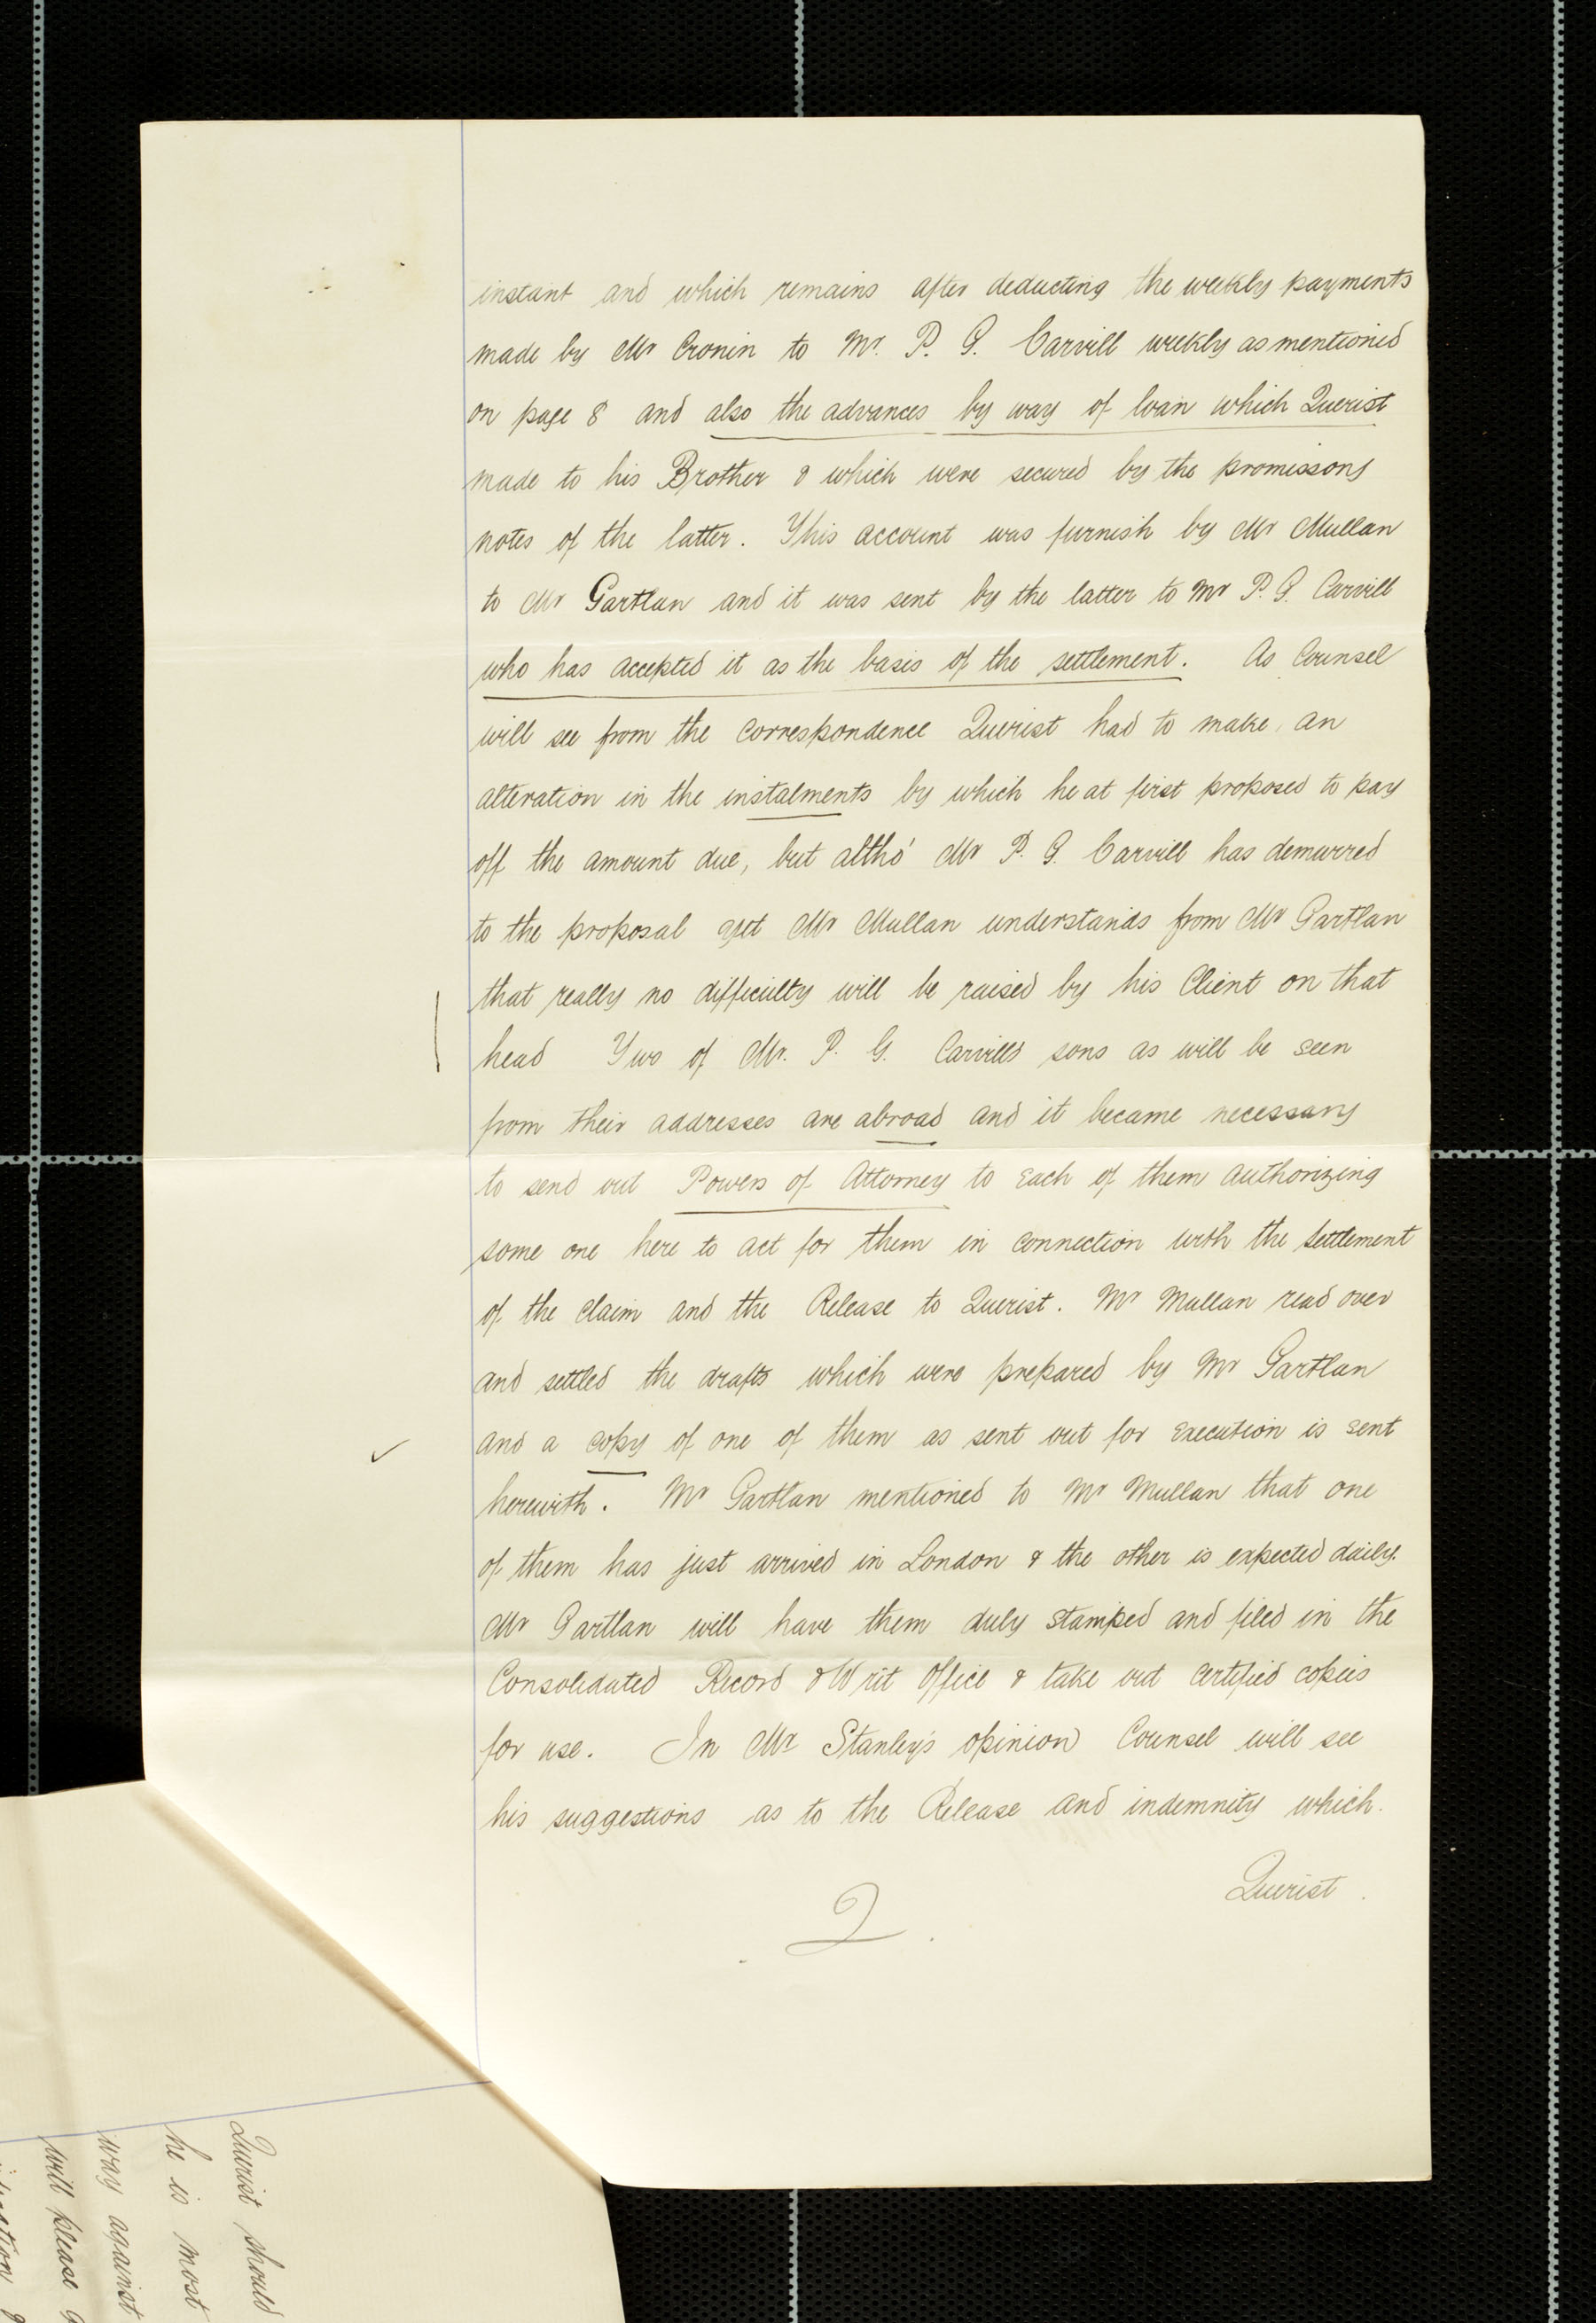 instant and which remains after deducting the weekly payments
made by Mr Cronin to Mr. P. G. Carvill weekly as mentioned
on page 8 and also the advances by way of loan which Querist
made to his Brother & which were secured by the promissory
notes of the latter. This account was furnish by Mr Mullan
to Mr Gartlan and it was sent by the latter to Mr P. G. Carvill
who has accepted it as the basis of the settlement. As Counsel
will see from the correspondence Querist had to make an
alteration in the instalments by which he at first proposed to pay
off the amount due, but altho' Mr P. G. Carvill has demurred
to the proposal yet Mr Mullan understands from Mr Gartlan
that really no difficulty will be raised by his Client on that
head Two of Mr. P. G. Carvills sons as will be seen
from their addresses are abroad and it became necessary
to send out Powers of Attorney to Each of them authorizing
some one here to act for them in connection with the settlement
of the claim and the Release to Querist. Mr Mullan read over
and settled the drafts which were prepared by Mr Gartlan
and a copy of one of them as sent out for Execution is sent
herewith. Mr Gartlan mentioned to Mr Mullan that one
of them has just arrived in London & the other is expected daily.
Mr Gartlan will have them duly stamped and filed in the
Consolidated Record & Writ Office & take out certified copies
for use. In Mr Stanley's opinion Counsel will see
his suggestions as to the Release and indemnity which.
Querist.
2.
Querist should
he is most
way against
will please